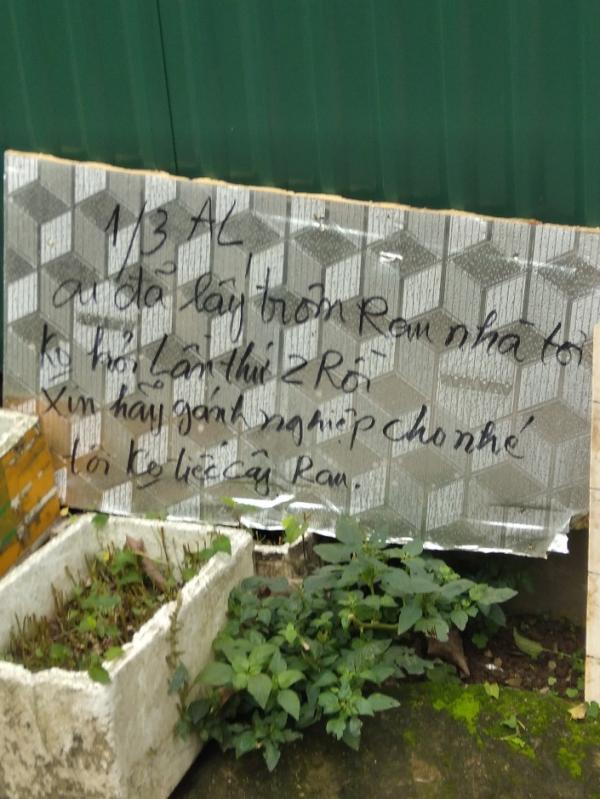 1/3 AL
ai đã lấy trôm Rau nhà tôi
Ko hỏi Lần thứ 2 Rồi
Xin hẫy gánh nghiệp cho nhé
tôi Ko tiếc cây Rau.